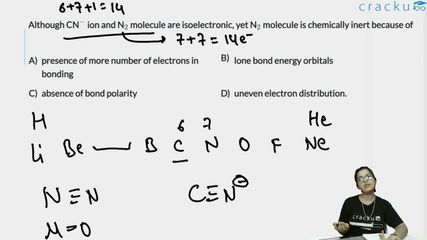 cracku
6+7+1=14
Although CN⁻ ion and N₂ molecule are isoelectronic, yet N₂ molecule is chemically inert because of
7+7=14e⁻
A) presence of more number of electrons in bonding
B) lone bond energy orbitals
C) absence of bond polarity
D) uneven electron distribution.
H He
6 7
Li Be B C N O F Ne
N≡N C≡N⁻
μ=0
cracku